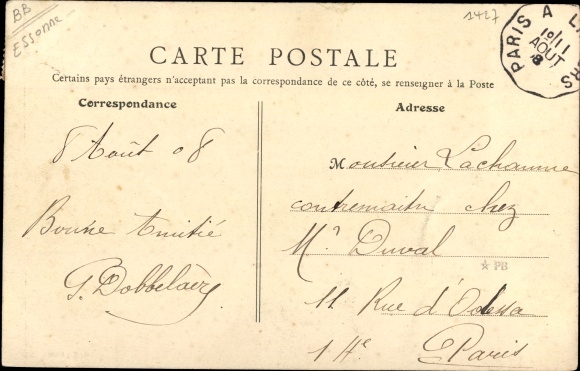 BB
Essonne
1427
PARIS A
10/11
AOUT
8
CARTE POSTALE
Certains pays étrangers n'acceptant pas la correspondance de ce côté, se renseigner à la Poste
Correspondance
8 Août 08
Bonne Amitié
G. Dobbelaere
Adresse
Monsieur Lachaume
contremaitre chez
Mr Duval
PB
11 Rue d'Odessa
14e Paris